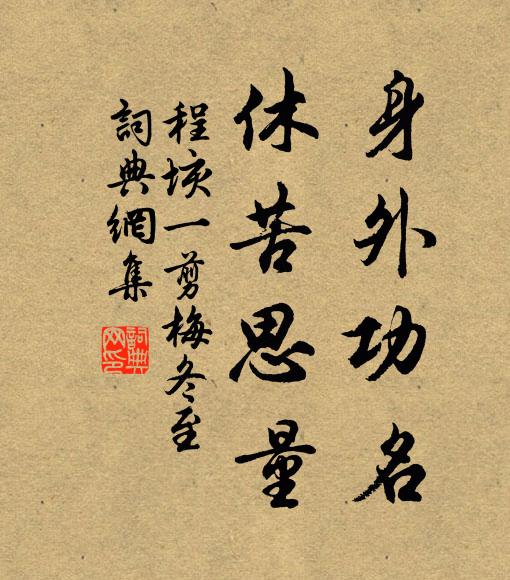 身外功名
休苦思量
程垓一剪梅冬至
詞典網集
詞典
网印